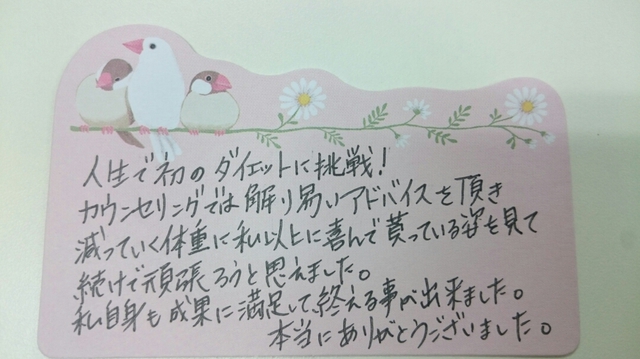 人生で初のダイエットに挑戦!
カウンセリングでは解り易いアドバイスを頂き
減っていく体重に私以上に喜んで貰っている姿を見て
続けて頑張ろうと思えました。
私自身も成果に満足して終える事が出来ました。
本当にありがとうございました。